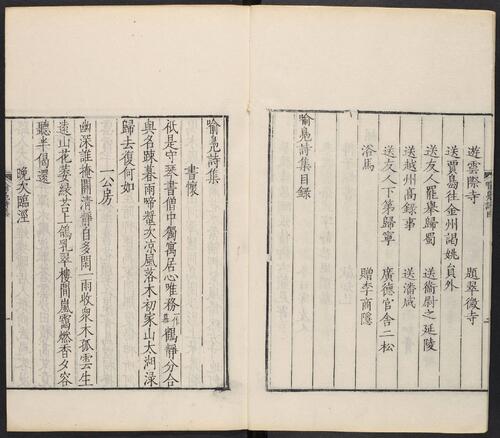 遊雲際寺　題翠微寺
送賈島往金州謁姚員外
送友人罷舉歸蜀　送衛尉之延陵
送越州高錄事　送潘咸
送友人下第歸寧　廣德官舍二松
浴馬　贈李商隱
喻鳧詩集目録
喻鳧詩集
書懷
秖是守琴書僧中獨寓居心唯務一作慕鶴靜分合
與名踈暮雨啼螿次凉風落木初家山太湖淥
歸去復何如
一公房
幽深誰掩關清靜自多閑一雨收衆木孤雲生
遠山花萎綠苔上鴿乳翠樓間嵐靄燃香夕容
聽半偈還
晚次臨涇